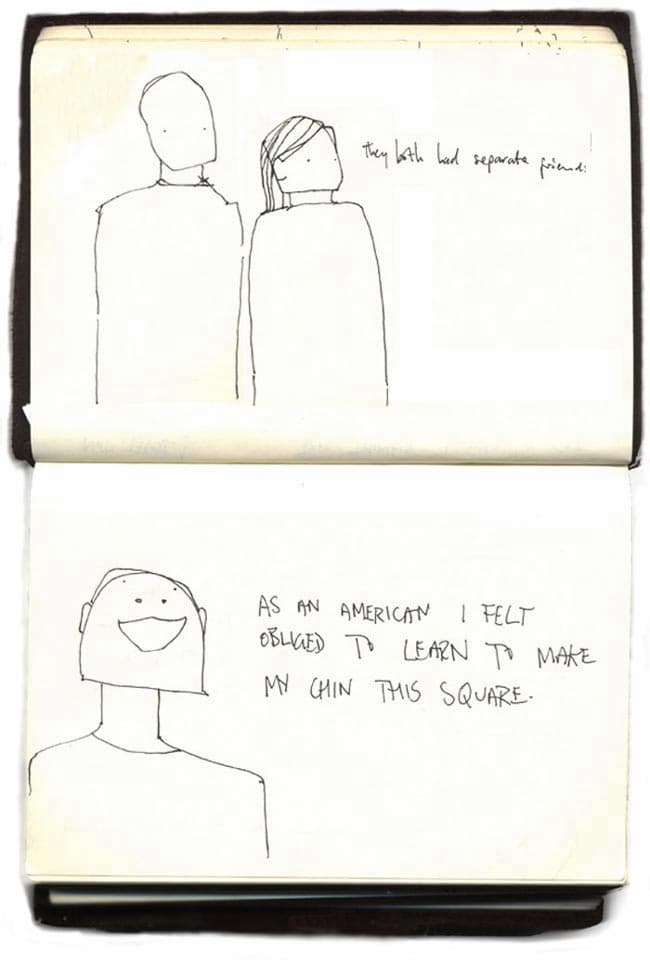 they both had separate friends!
AS AN AMERICAN I FELT
OBLIGED TO LEARN TO MAKE
MY CHIN THIS SQUARE.